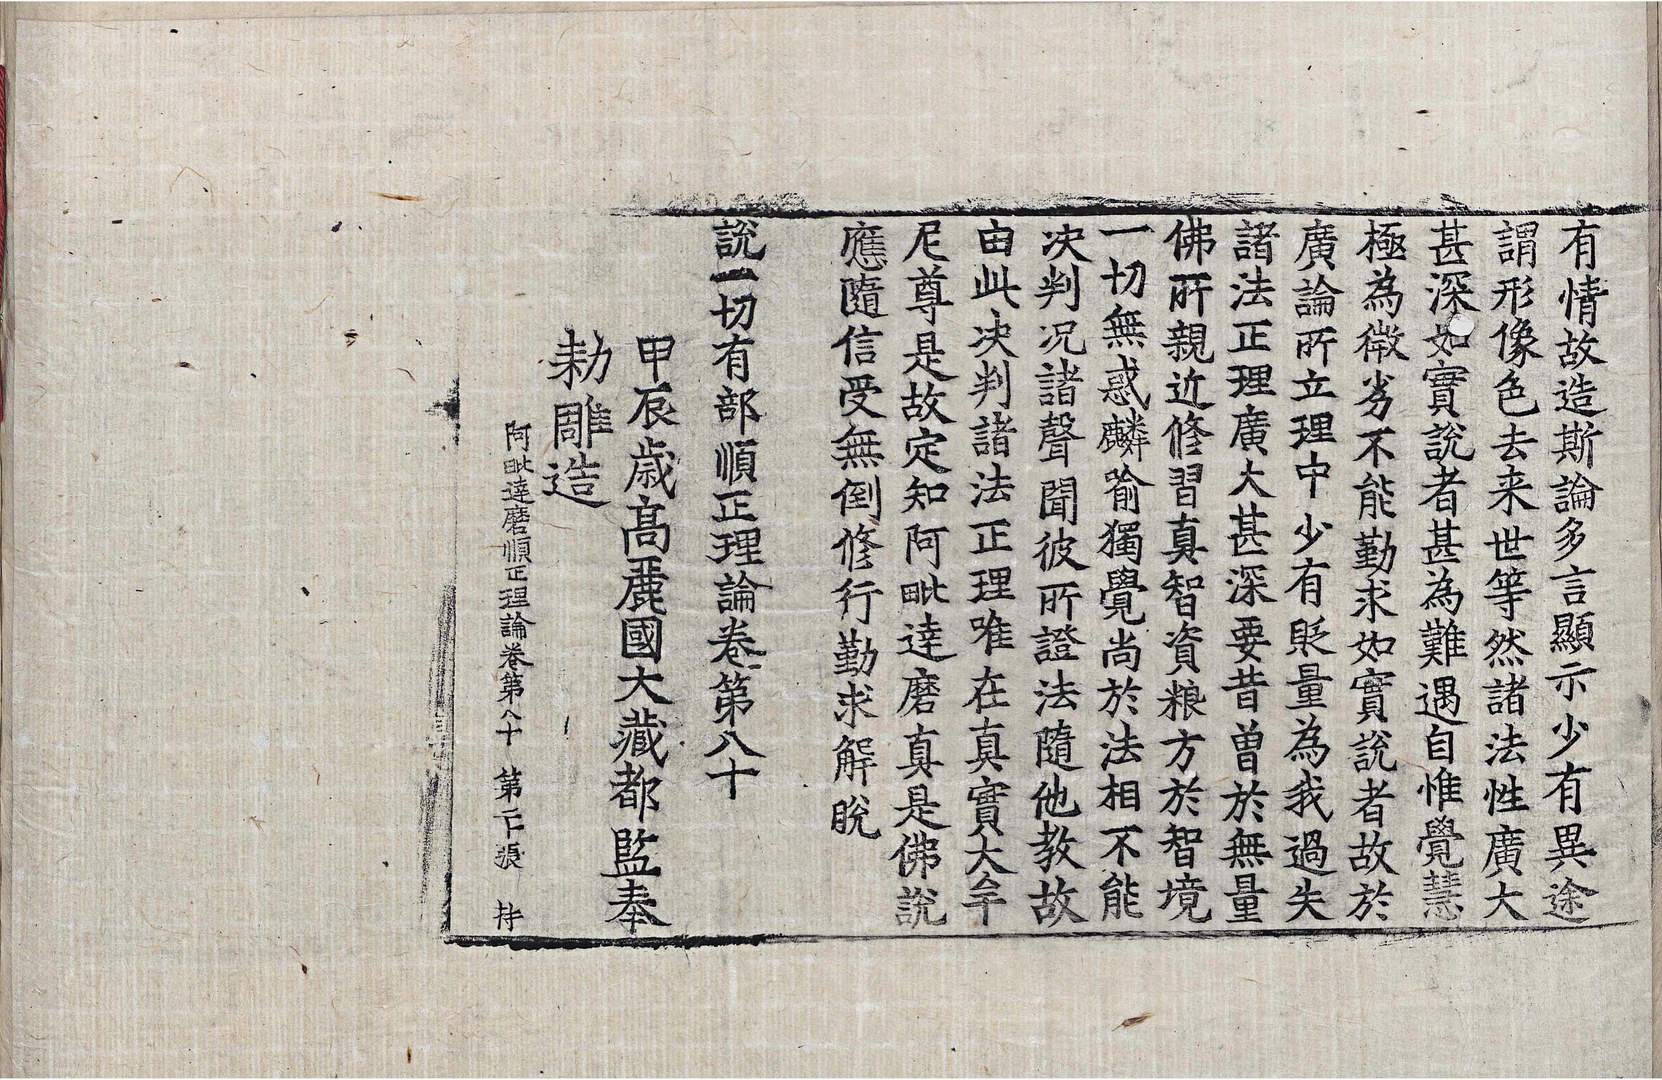 有情故造斯論多言顯示少有異途
謂形像色去来世等然諸法性廣大
甚深如實說者甚為難遇自惟覺慧
極為微劣不能勤求如實說者故於
廣論所立理中少有貶量為我過失
諸法正理廣大甚深要昔曾於無量
佛所親近修習真智資粮方於智境
一切無惑麟喻獨覺尚於法相不能
决判况諸聲聞彼所證法隨他教故
由此决判諸法正理唯在真實大牟
尼尊是故定知阿毗達磨真是佛說
應隨信受無倒修行勤求解脫
說一切有部順正理論卷第八十
甲辰歲高麗國大藏都監奉
勑雕造
阿毗達磨順正理論卷第八十 第二十張 持